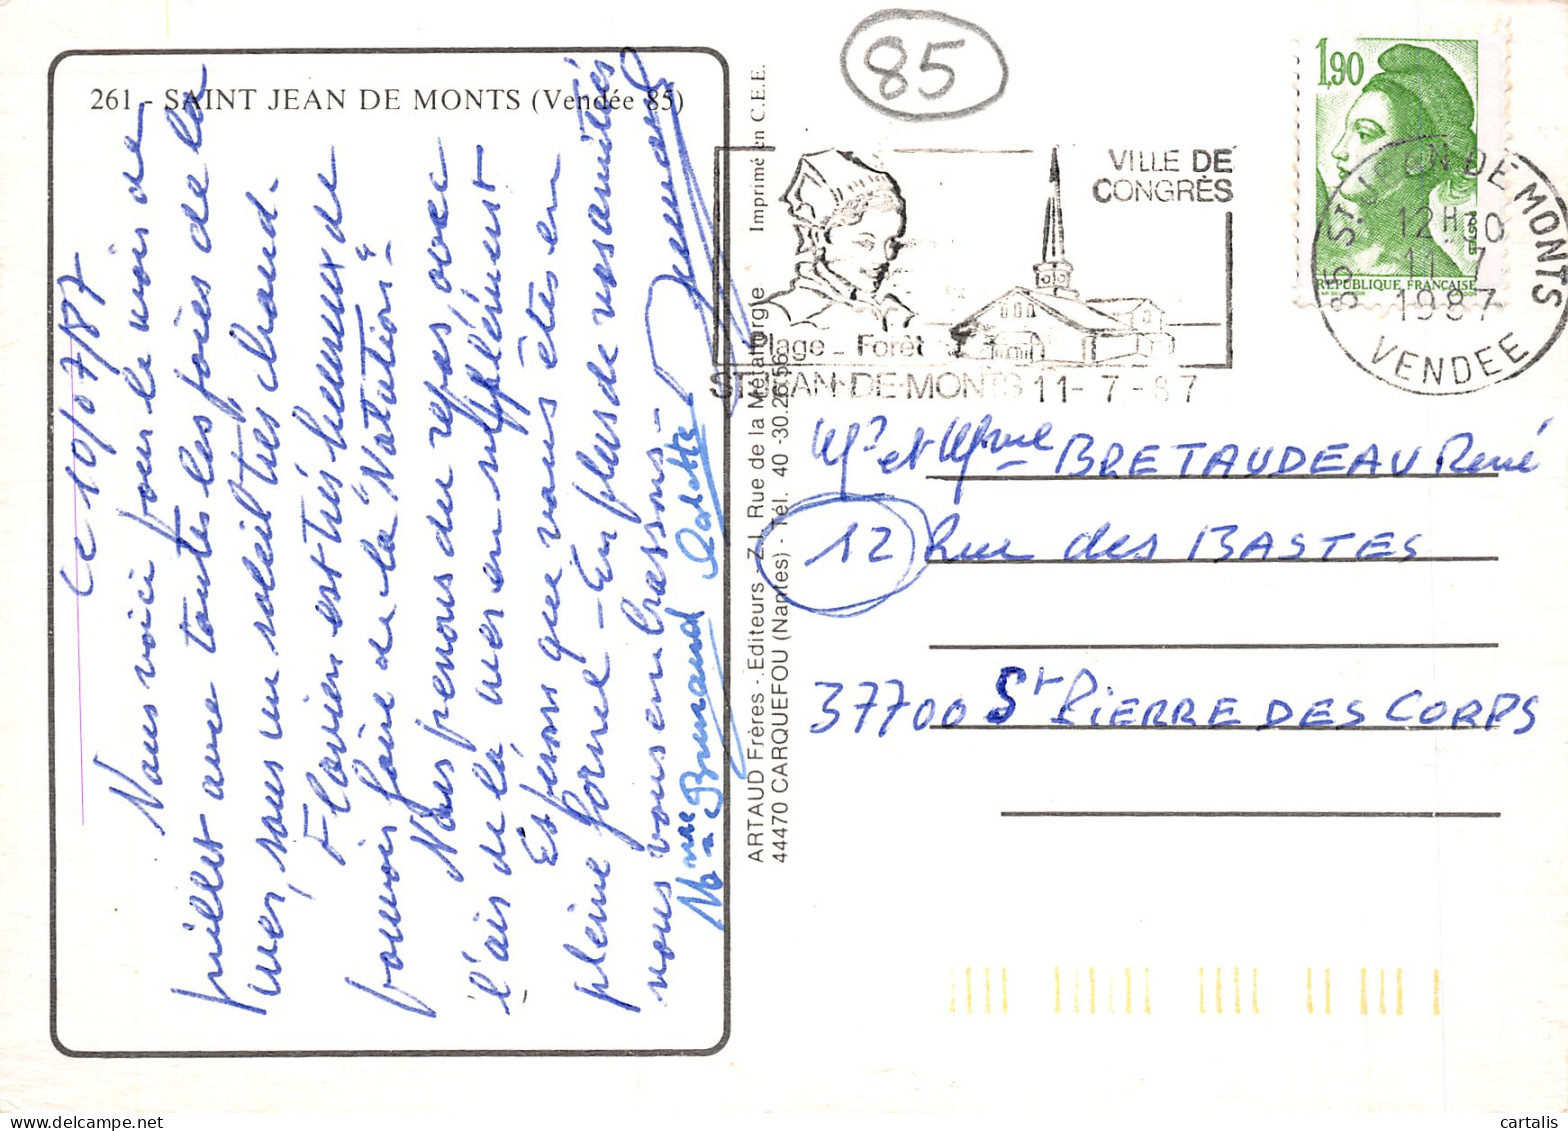 261 - SAINT JEAN DE MONTS (Vendée 85)
Ce 10/07/87
Nous voici pour le mois de
juillet avec toutes les joies de la
mer, sous un soleil très chaud.
Flavien est très heureux de
pouvoir faire de la "Natation"
Nous prenons du repos, avec
l'air de la mer en supplément
Espérons que vous êtes en
pleine forme - En plus de nos amitiés
nous vous embrassons -
Mme Bernard
85
Imprimé en C.E.E.
ARTAUD Frères - Editeurs - Z.I. Rue de la Métallurgie
44470 CARQUEFOU (Nantes) - Tél. 40 -30.26.56
VILLE DE
CONGRÈS
Plage - Forêt
ST-JEAN-DE-MONTS 11-7-87
1,90
POSTES
REPUBLIQUE FRANÇAISE
85 ST JEAN DE MONTS
12H10
11-7
1987
VENDEE
Mr et Mme BRETAUDEAU René
12 Rue des BASTES
37700 St PIERRE DES CORPS
cartalis